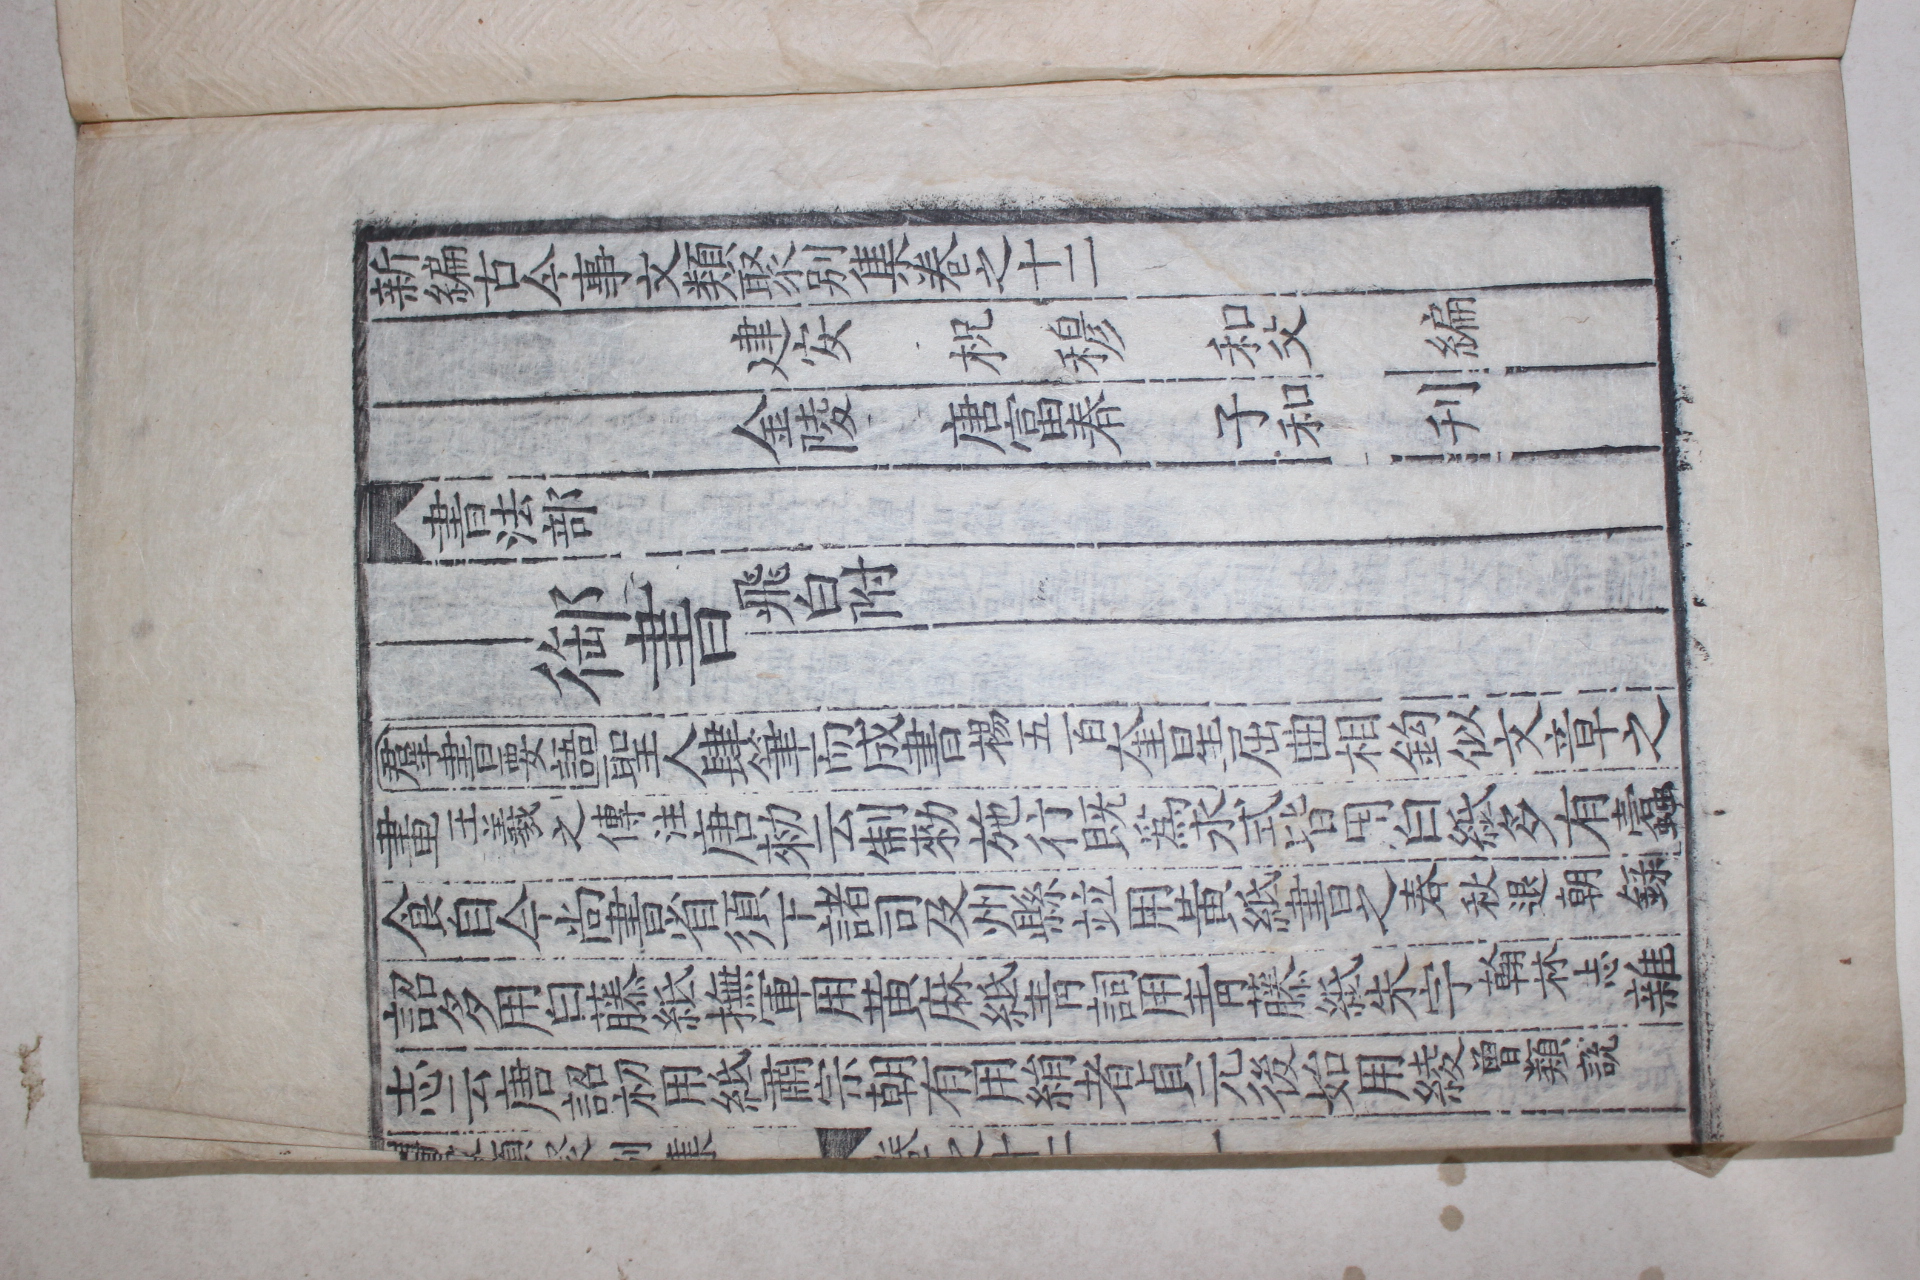 新編古今事文類聚別集卷之十二
建安 祝穆 和父 編
金陵 唐富春 子和 刊
書法部
御書 飛白附
羣書要語聖人肆筆而成書楊五百大書皆屈曲相鉤似文章之
畫王羲之傳注唐勑云制勅施行既爲永式皆用白紙多有蠹
食自今尚書省頒下諸司及州縣竝用黃紙書之春秋退朝錄
詔多用白藤紙撫軍用黃麻紙青詞用青藤紙朱字翰林志雜
志云唐詔初用紙肅宗朝有用絹者貞元後始用綾曾類說